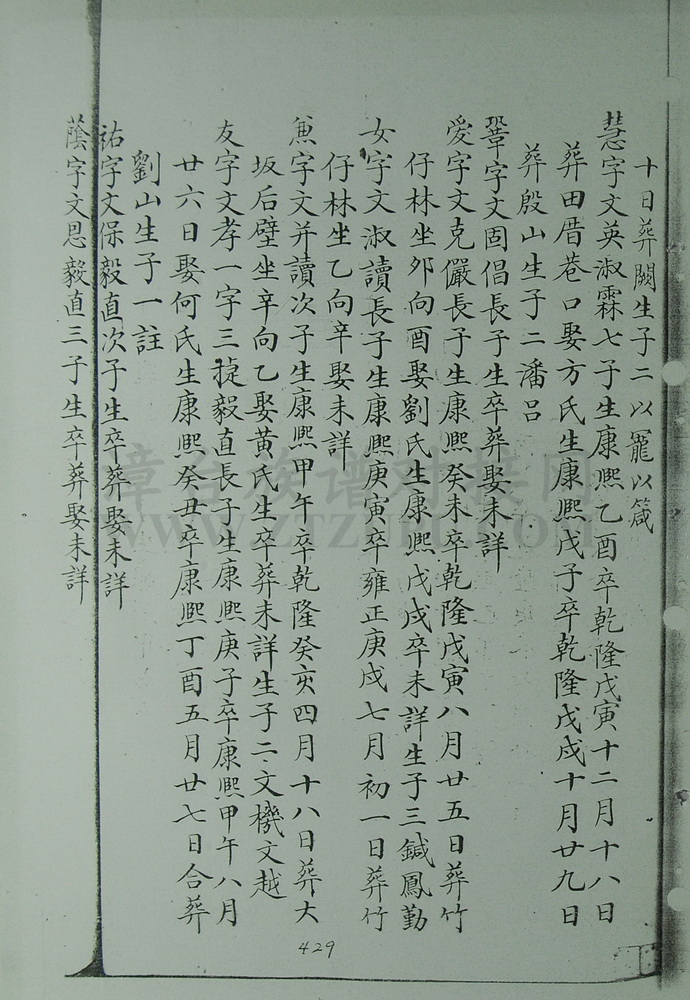 十日葬闕生子二以寵以箴
慧字文英淑霖七子生康熙乙酉卒乾隆戊寅十二月十八日
葬田厝巷口娶方氏生康熙戊子卒乾隆戊戌十月廿九日
葬殷山生子二潘吕
鞏字文固倡長子生卒葬娶未詳
愛字文克儼長子生康熙癸未卒乾隆戊寅八月廿五日葬竹
仔林坐夘向酉娶劉氏生康熙戊戌卒未詳生子三鍼鳳勤
女字文淑讀長子生康熙庚寅卒雍正庚戌七月初一日葬竹
仔林坐乙向辛娶未詳
魚字文并讀次子生康熙甲午卒乾隆癸亥四月十八日葬大
坂后壁坐辛向乙娶黄氏生卒葬未詳生子二文機文越
友字文孝一字三㨗毅直長子生康熙庚子卒康熙甲午八月
廿六日娶何氏生康熙癸丑卒康熙丁酉五月廿七日合葬
劉山生子一註
祐字文保毅直次子生卒葬娶未詳
蔭字文恩毅直三子生卒葬娶未詳
429
漳台族谱对接网
www.ztzupu.com